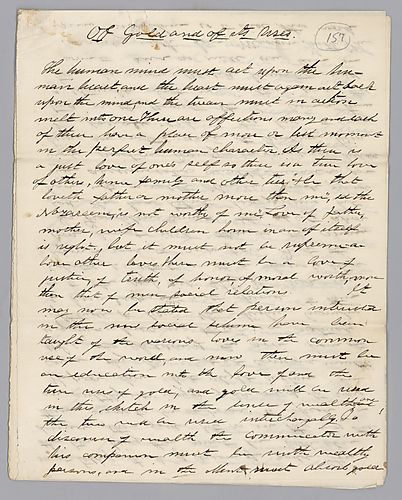 Of Gold and of its Uses.
157
The human mind must act upon the hu-
man heart and the heart must again act back
upon the mind and the twain must in
melt into one There are affections many and each
of them has a place of more or less moment
in the perfect human character As there is
a just love of one's self as there is a true love
of others, hence family and other ties. He that
loveth father or mother more than me, said the
Nazarene, is not worthy of me, Love of father,
mother, wife children home in and of itself
is right, but it must not be supreme a-
bove other love, there must be a love of
justice, of truth, of honor, of moral worth, more
than that of mere social relations. It
may now be stated that persons interested
in the new social scheme have been
taught of the various loves in the common
use of the world and now there must be
an education into the love of and the
true uses of gold, and gold will be used
in this sketch in the sense of wealth and
the two will be used interchangably. To
discourse of wealth the communicator with
his companion must be with wealthy
persons, and in the must absorb gold